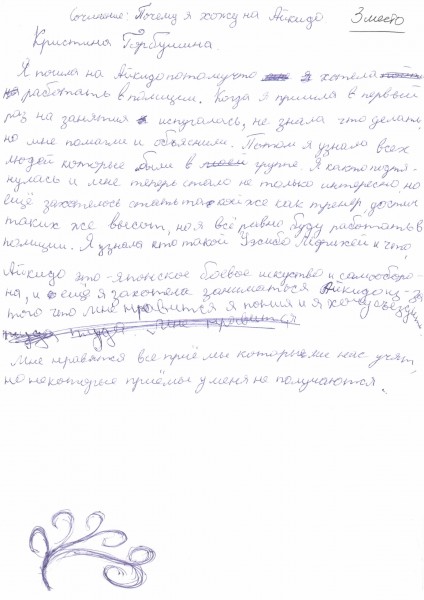 Сочинение: Почему я хожу на Айкидо 3 место
Кристина Горбушина.
Я пошла на Айкидо потому что я хотела
работать в полиции. Когда я пришла в первый
раз на занятия испугалась, не знала что делать,
но мне помагли и объяснили. Потом я узнала всех
людей которые были в группе. Я както потя-
нулась и мне теперь стало не только интересно, но
ещё захотелось стать такой же как тренер, достич
таких же высот, но я всё равно буду работать в
полиции. Я узнала кто такой Уэсиба Морихей и что
Айкидо это - японское боевое искуство и самооборо-
на, и ещё я захотела заниматься Айкидо из-за
того что мне нравится я поняла и я хочу
туда мне нравится
Мне нравятся все приёмы которыеми нас учят,
но некоторые приёмы у меня не получаются.